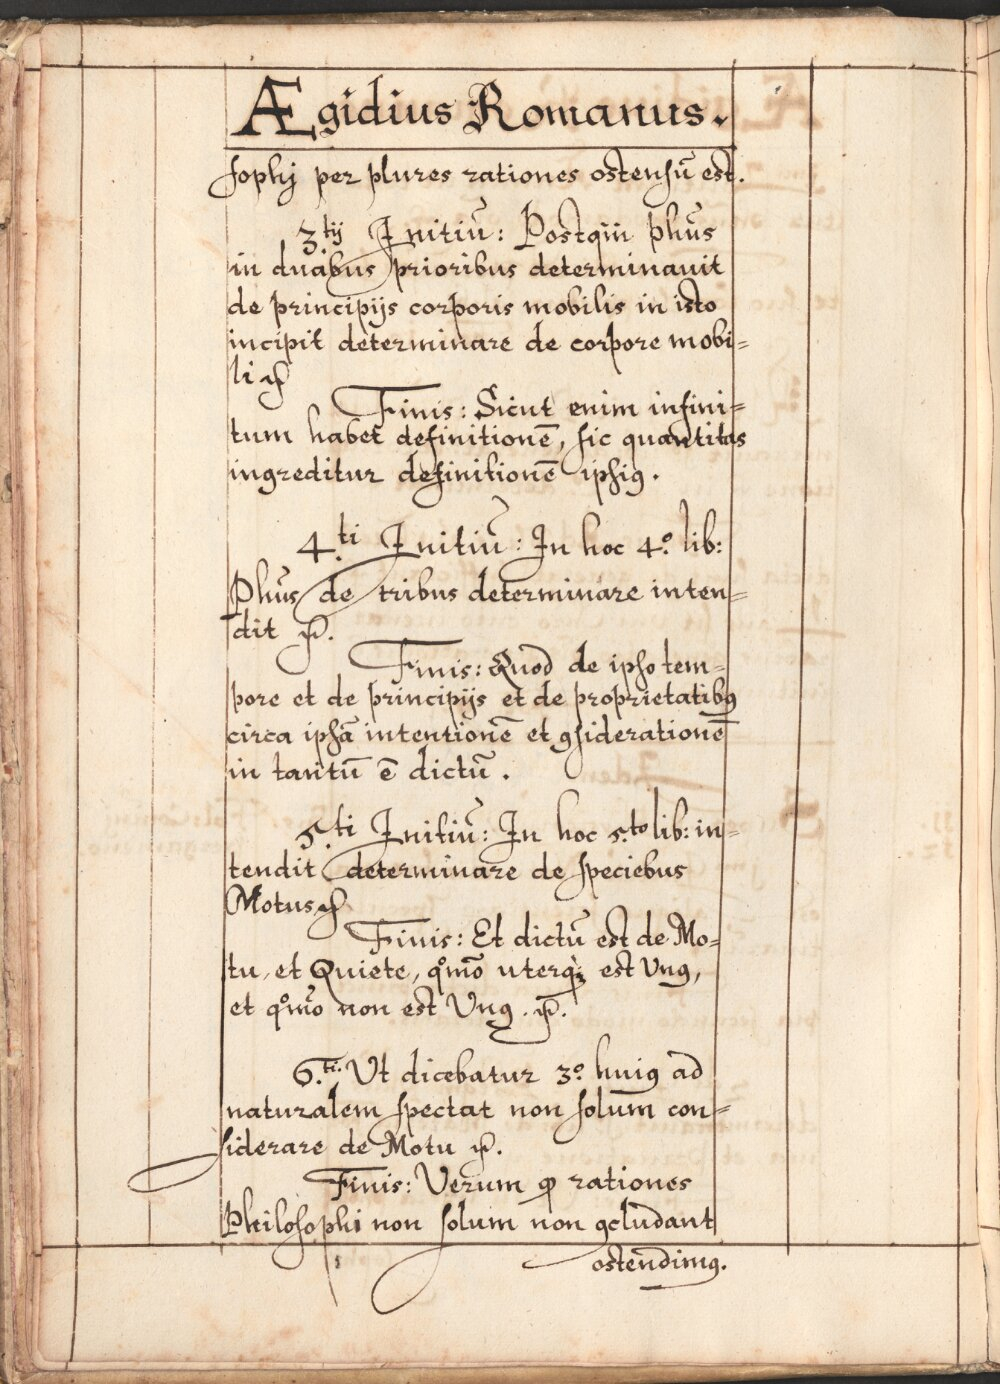 Ægidius Romanus.
sophj per plures rationes ostensū est.
3.tij Initiū: Postqū phūs
in duabus prioribus determinauit
de principijs corporis mobilis in isto
incipit determinare de corpore mobi=
li
Finis: Sicut enim infini=
tum habet definitionē, sic quantitas
ingreditur definitionē ipsiꝰ.
4.ti Initiū: In hoc 4.º lib:
Phūs de tribus determinare inten=
dit
Finis: Quod de ipso tem=
pore et de principijs et de proprietatibꝰ
circa ipsā intentionē et ꝯsiderationē
in tantū ē dictū.
5.ti Initiū: In hoc 5.to lib: in=
tendit determinare de speciebus
Motus
Finis: Et dictū est de Mo=
tu, et Quiete, qºmō uterqꝫ est Vnꝰ,
et qºmō non est Vnꝰ.
6.ti. Vt dicebatur 3º huiꝰ ad
naturalem spectat non solum con=
siderare de Motu
Finis: Verum ꝙ rationes
Philosophi non solum non ꝯcludant
ostendimꝰ.